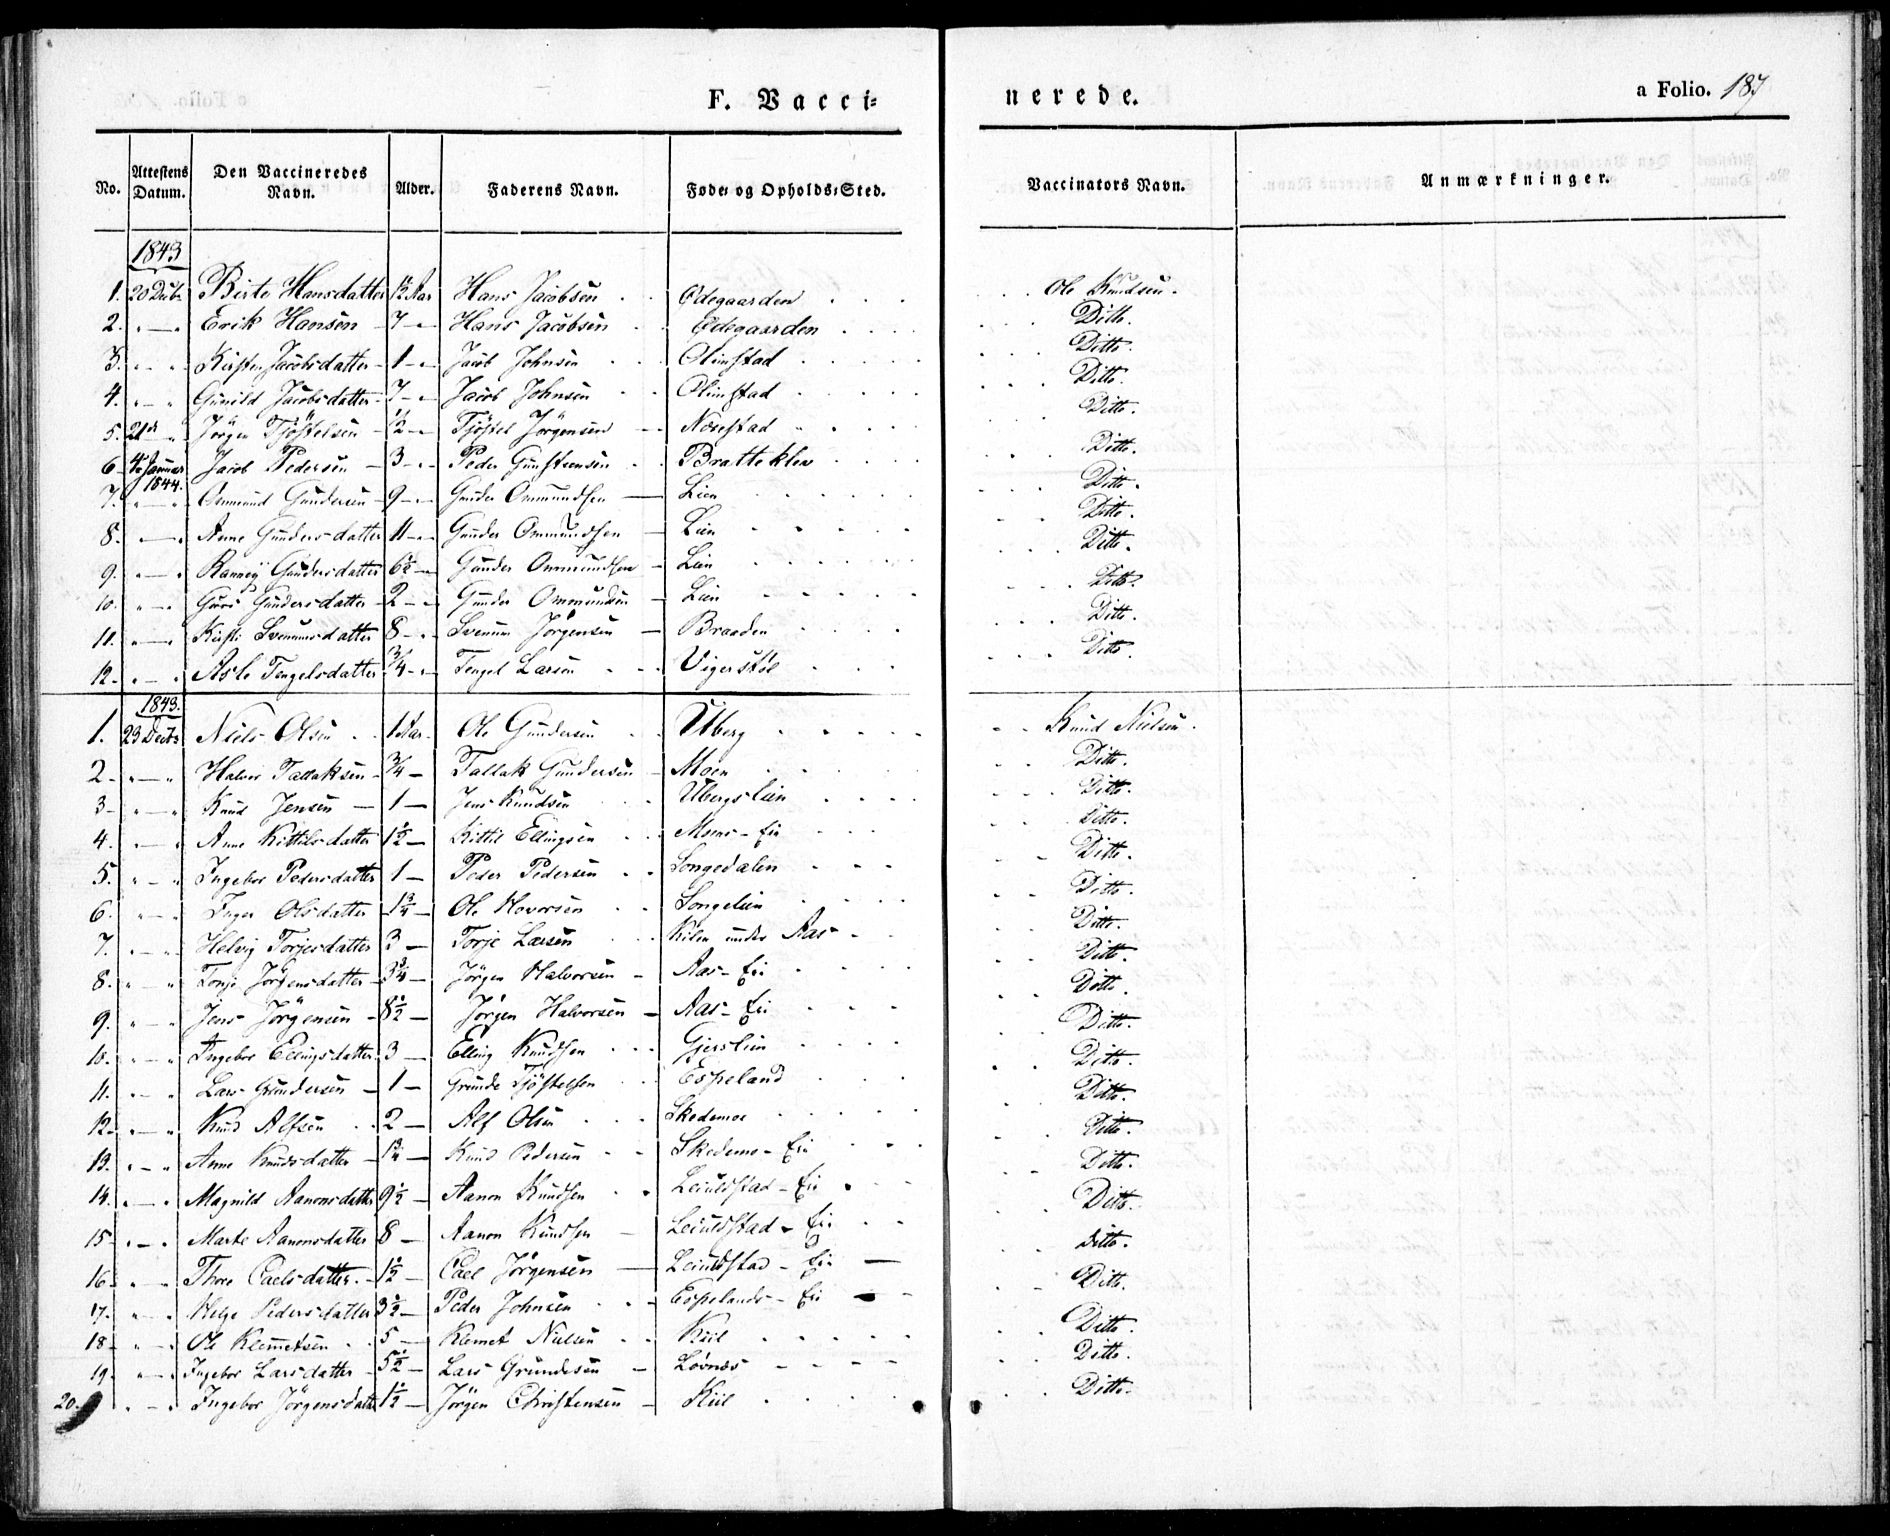 F. Vacci=
nerede.
a Folio. 187
No. Attestens Datum. Den Vaccineredes Navn. Alder. Faderens Navn. Føde- og Opholds-Sted. Vaccinators Navn. Anmærkninger.
1843
1. 20 Birte Hansdatter 12 Aar Hans Jacobsen Ødegaarden Ole Knudsen.
2. " — " Erik Hansen 7 — " Hans Jacobsen Ødegaarden Ditto.
3. " — " Kirsten Jacobsdatter 1 — " Jacob Johnsen Olimstad Ditto.
4. " — " Gunild Jacobsdatter 7 — " Jacob Johnsen Olimstad Ditto.
5. 21de " Jörgen Tjöstelsen 1/2 — " Tjöstel Jörgensen Næsestad Ditto.
6 4de Januar 1844. Jacob Pedersen 3 — " Peder Gunsteensen Bratteklev Ditto.
7. " — " Ommund Gundersen 9 — " Gunder Ommundsen Lien Ditto.
8. " — " Anne Gundersdatter 11 — " Gunder Ommundsen Lien Ditto.
9. " — " Gundersdatter 6 1/2 — " Gunder Ommundsen Lien Ditto.
10. " — " Guro Gundersdatter 2 — " Gunder Ommundsen Lien Ditto.
11. " — " Kirsti Svenumsdatter 8 — " Svenum Jörgensen Braaden Ditto.
12. " — " Aslo Tengelsdatter 3/4 — " Tengel Larsen Vigerstöl Ditto.
1843.
1. 23 Decb Niels Olsen 1 Aar Ole Gundersen Uberg Knud Nielsen.
2 " — " Halvor Tallaksen 3/4 — Tallak Gundersen Moen Ditto.
3 " — " Knud Jensen 1 — Jens Knudsen Ubergslien Ditto.
4. " — " Anne Kittilsdatter 1 1/2 — Kittil Ellingsen Moens-Eie Ditto.
5. " — " Ingebor Pedersdatter 1 — Peder Pedersen Songedalen Ditto.
6. " — " Inger Olsdatter 1 3/4 — Ole Hovorsen Songelien Ditto.
7. " — " Helvig Torjesdatter 3 — Torje Larsen Kilen under Aas Ditto.
8. " — " Tonje Jörgensdatter 3 3/4 — Jörgen Halvorsen Aas-Eie Ditto.
9. " — " Jens Jörgensen 8 1/2 — Jörgen Halvorsen Aas-Eie Ditto.
10. " — " Ingebor Ellingsdatter 3 — Elling Knudsen Gjerslien Ditto.
11. " — " Lars Grundersen 1 — Grunde Tjöstelsen Espeland Ditto.
12. " — " Knud Alfsen 2 — Alf Olsen Skedsmoe Ditto.
13. " — " Anne Knudsdatter Knud Pedersen Skedsmo-Eie Ditto.
14. " — " Magnild Aanonsdatter 9 1/2 — Aanon Knudsen Leiuldstad-Eie Ditto.
15 " — " Marte Aanonsdatter 8 — Aanon Knudsen Leiuldstad-Eie Ditto.
16 " — " Thore Caelsdatter. 1 1/2 — Cael Jörgensen Leiuldstad-Eie Ditto.
17. " — " Helge Pedersdatter 3 1/2 — Peder Johnsen Espelands-Eie Ditto.
18 " — " Ole Klemetsen 5 — Klemet Nielsen Kiil Ditto.
19. " — " Ingebor Larsdatter 5 1/2 — Lars Grundesen Lövnæs Ditto.
20. " — " Ingebor Jörgensdatter 1 1/2 — Jörgen Christensen Kiil Ditto.